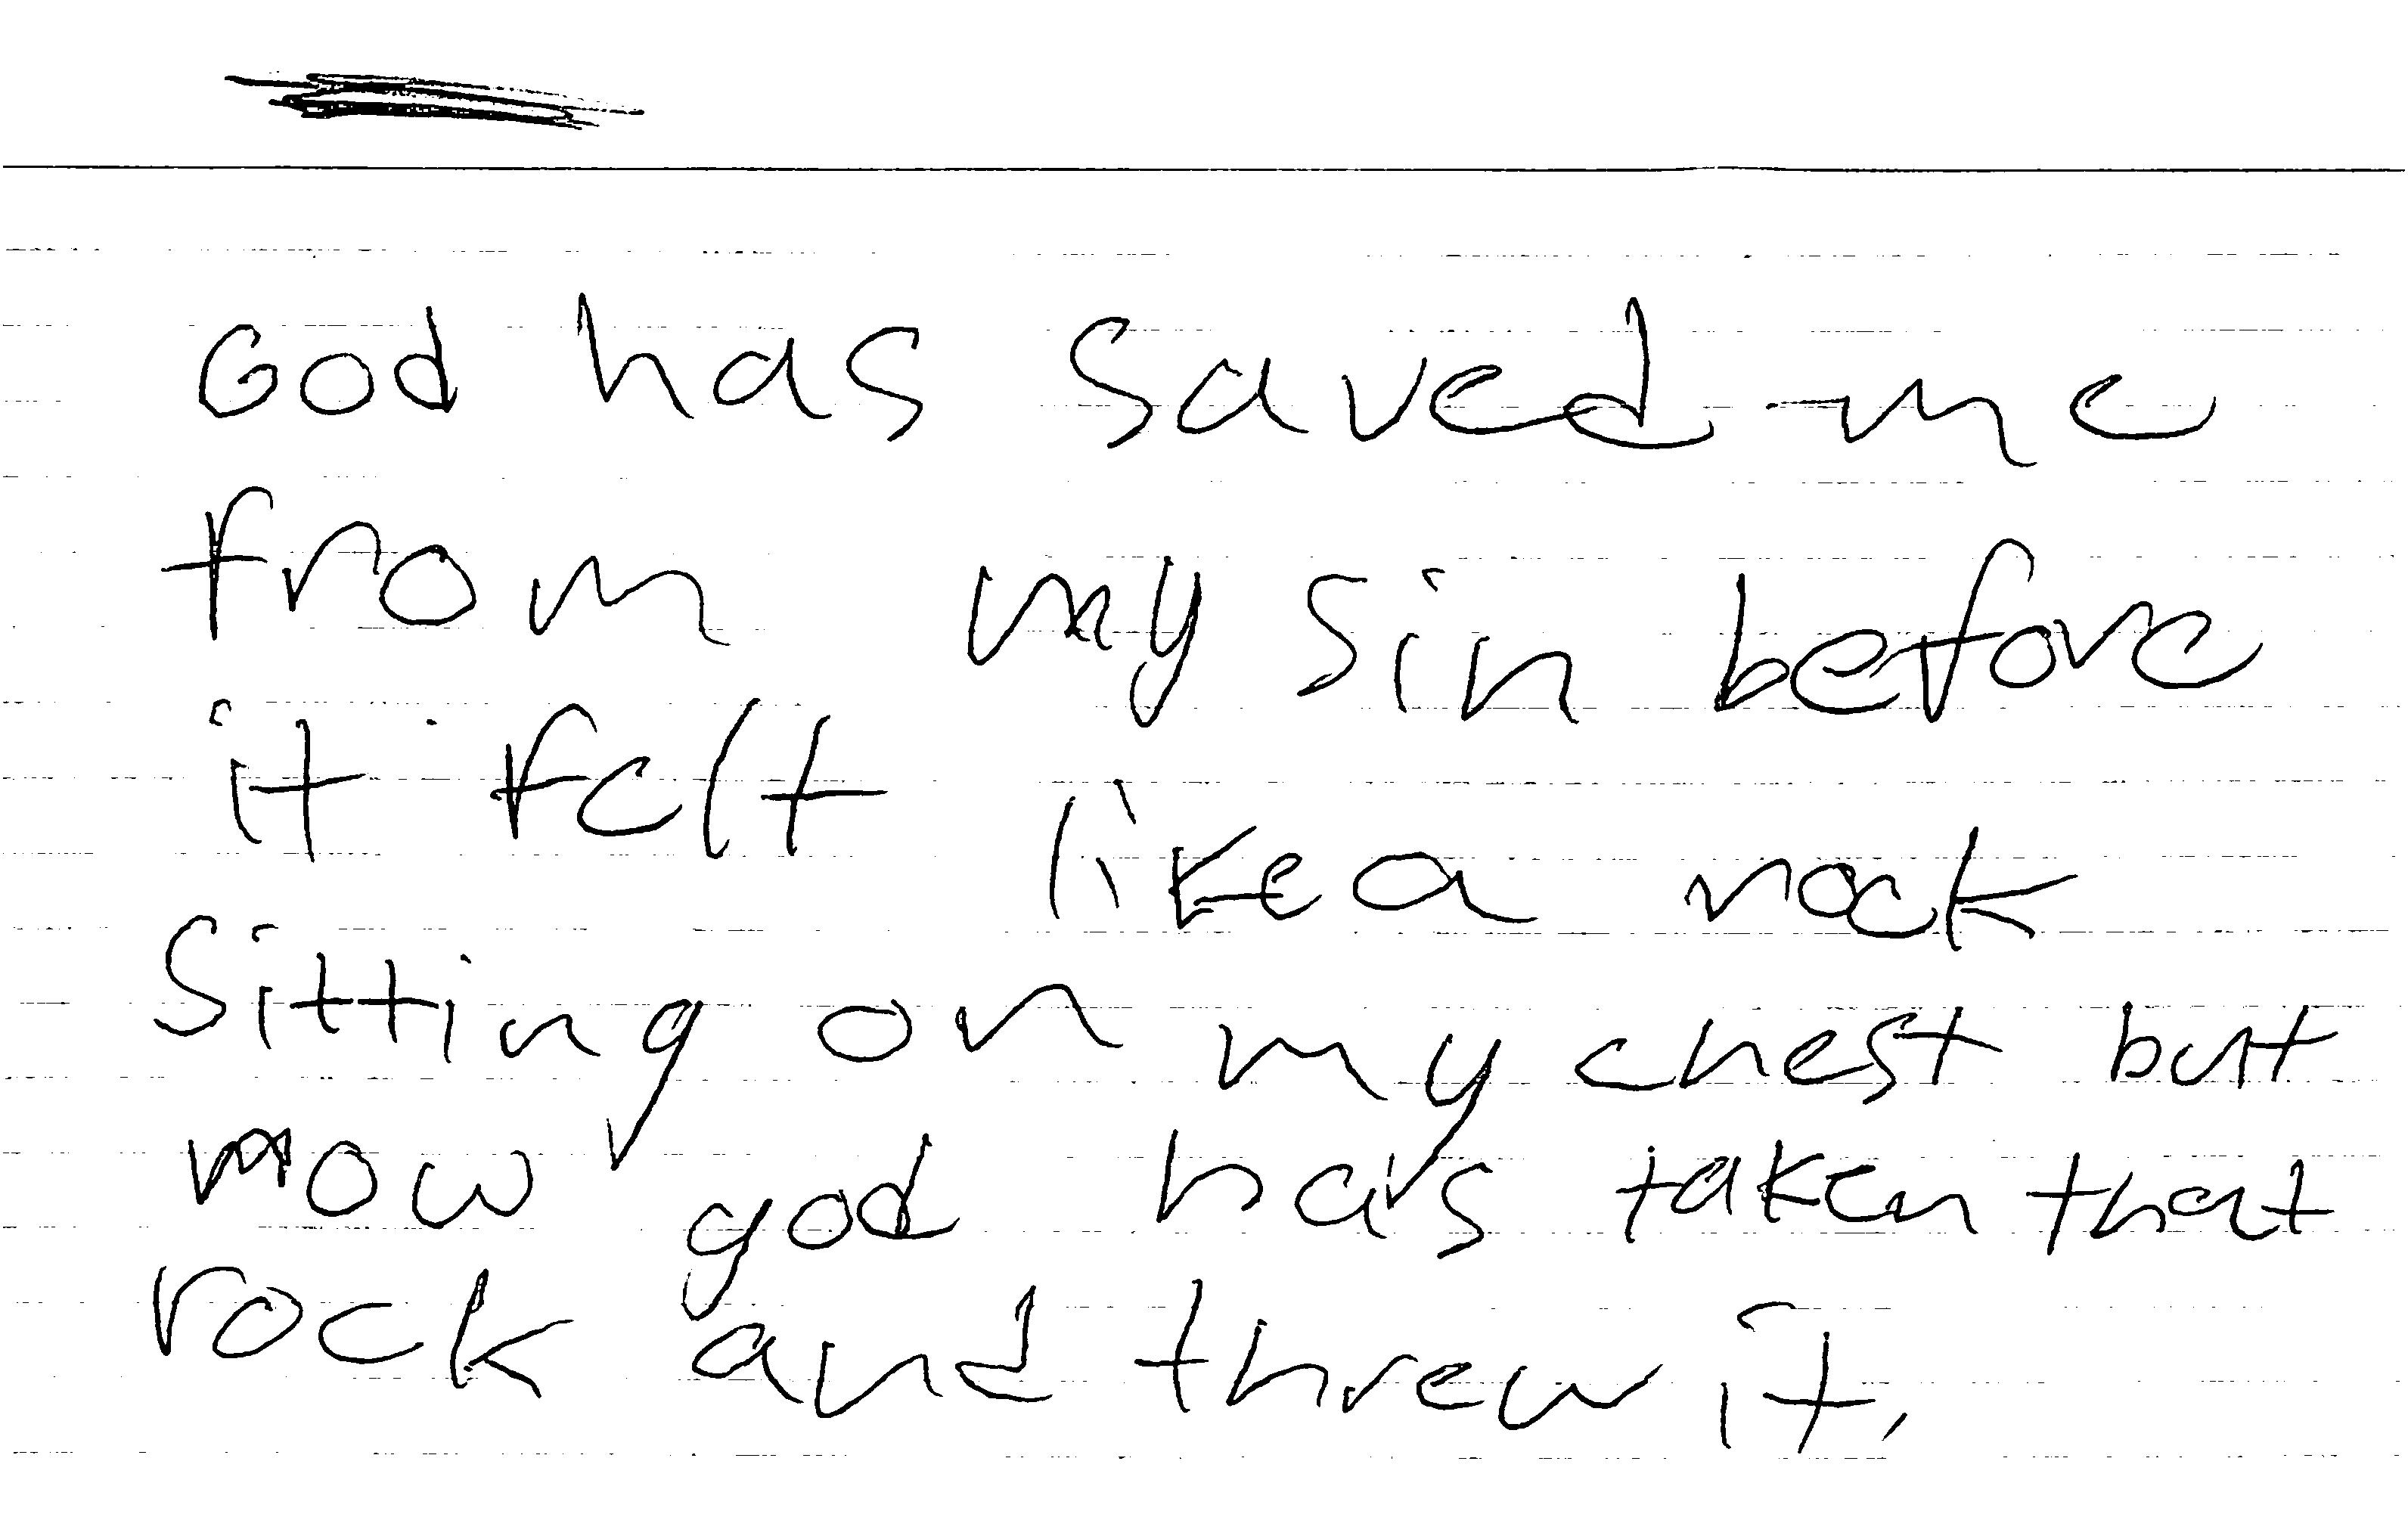 God has saved me
from my sin before
it felt like a rock
Sitting on my chest but
now god has taken that
rock and threw it.